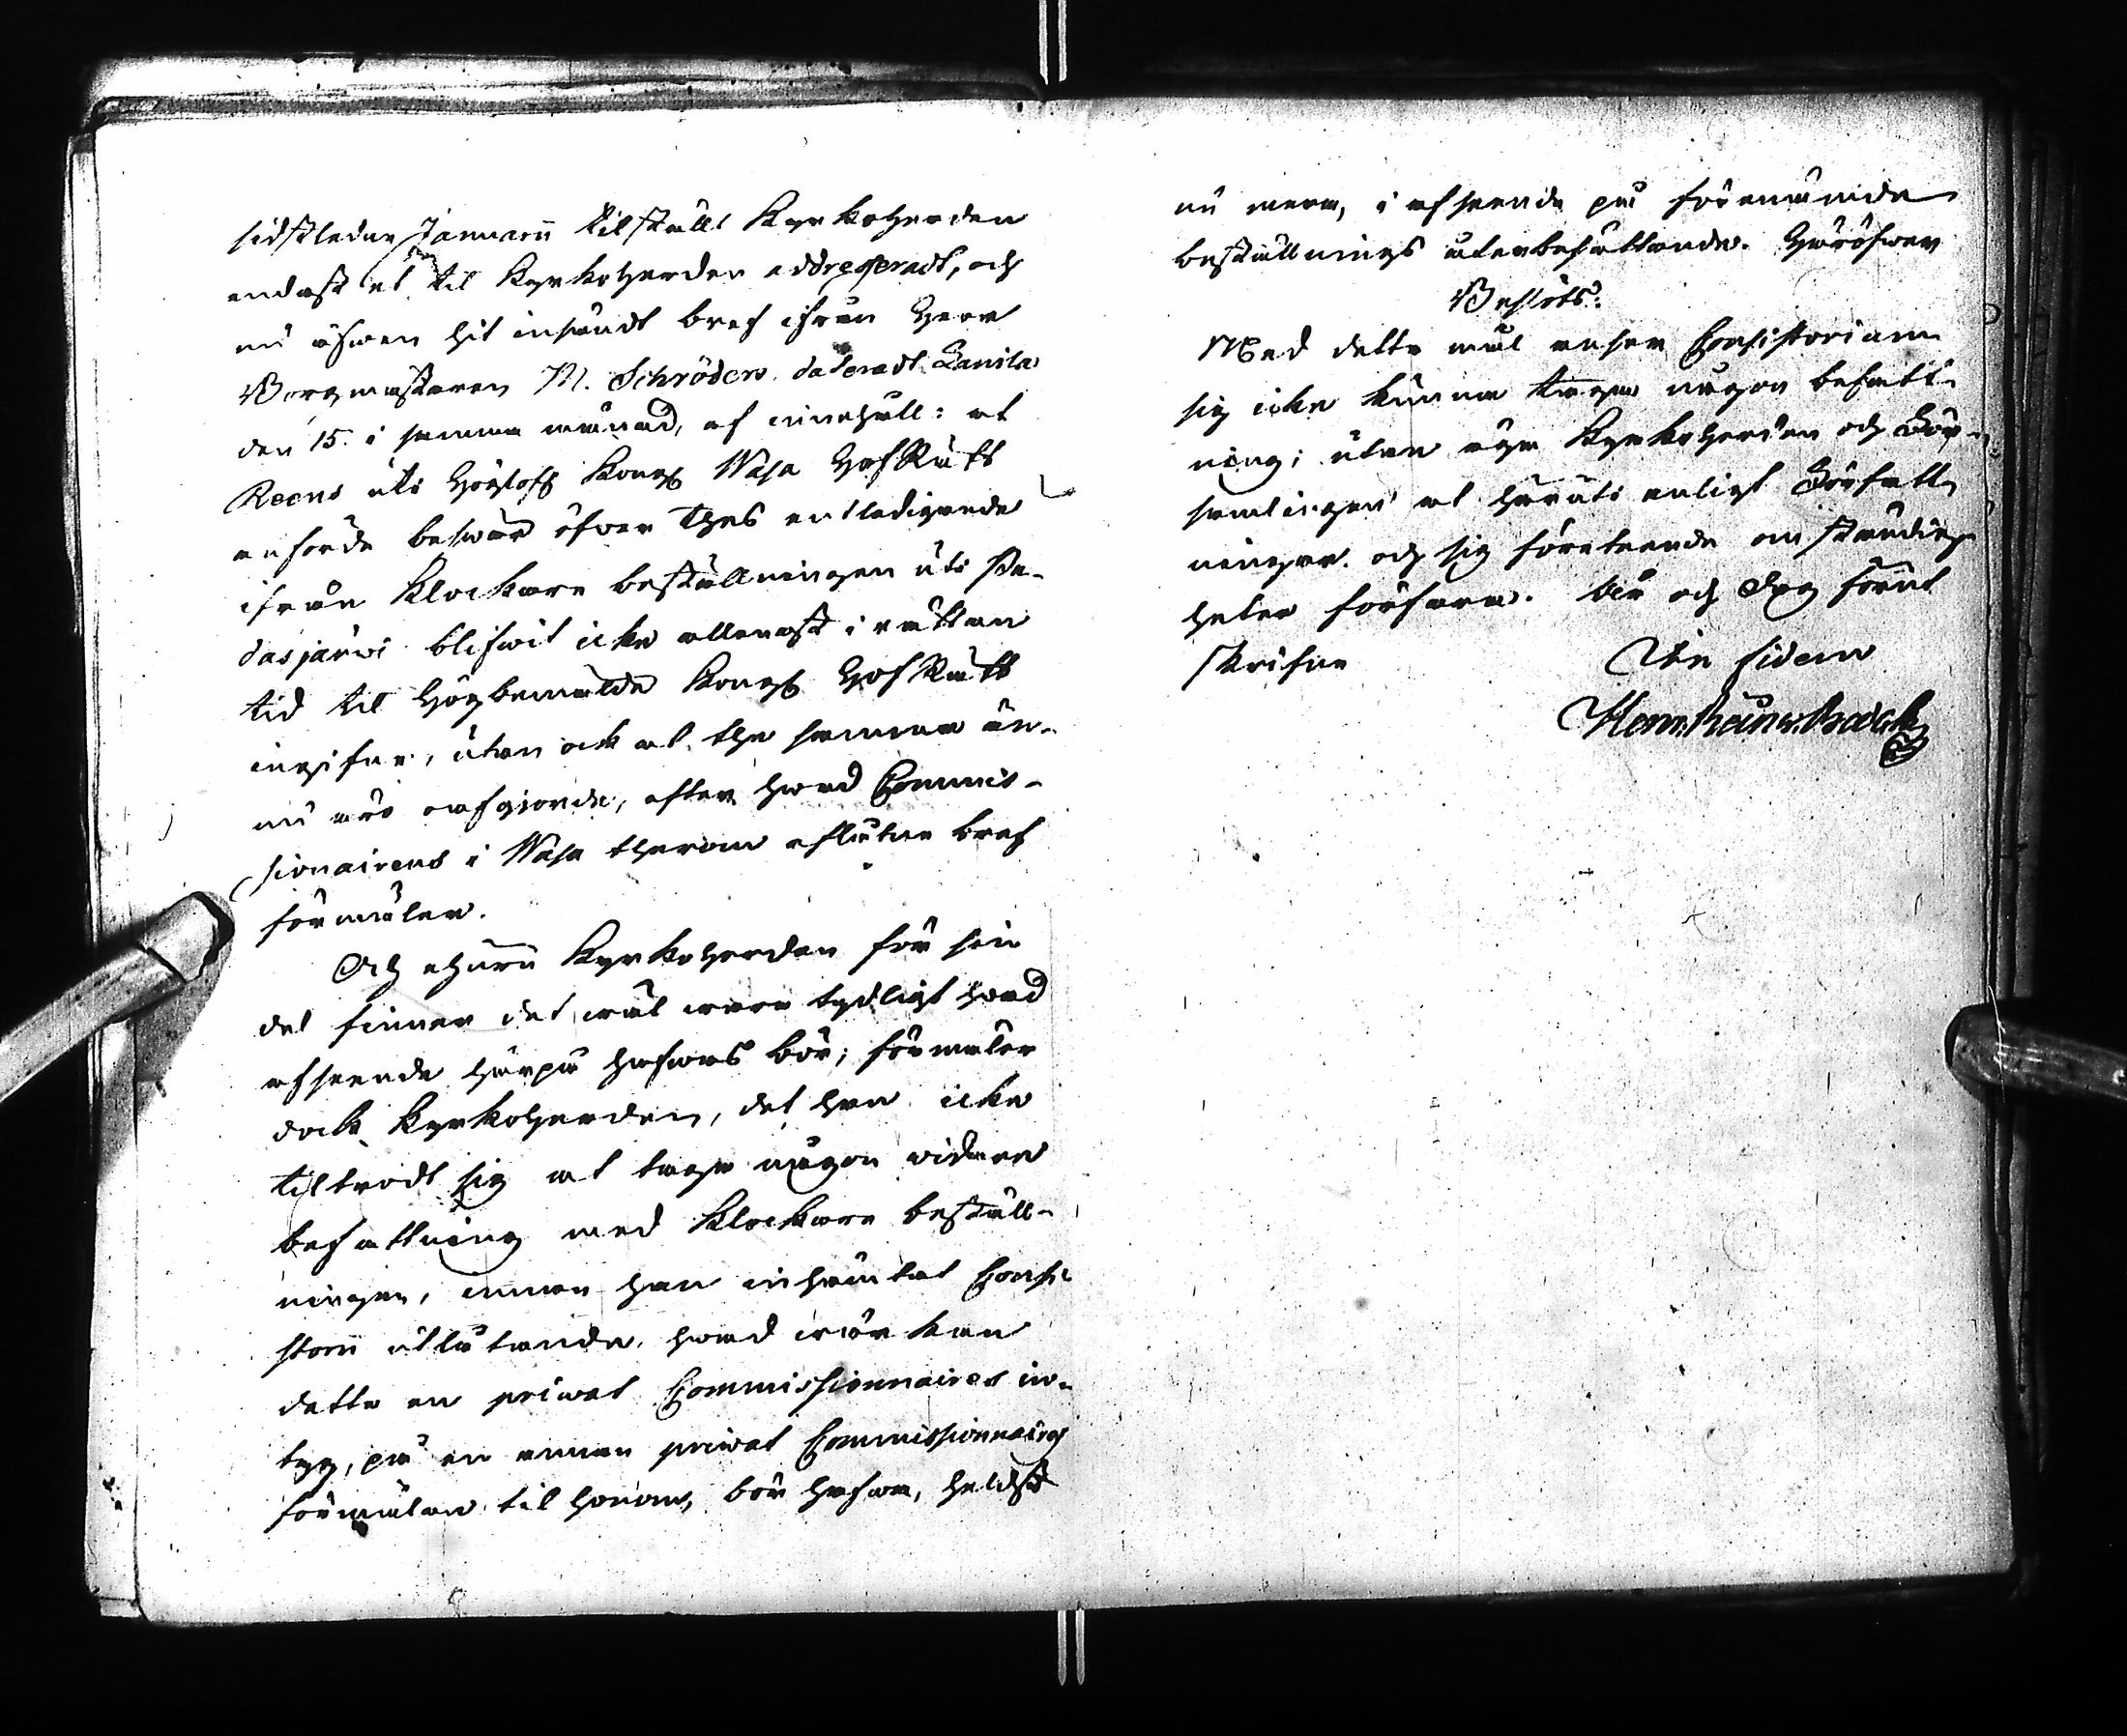 sidstledne Januarii tilstält Kyrkoherden
endast et til Kyrkoherden addresseradt, och
nu äfwen hit insändt bref ifrån Herr
Borgmästaren M. Schröder dateradt
den 15. i samma månad, af innehåll: at
Reens uti Högloft Kongl Wasa HofRätt
anförde beswär öfwer thes entledigande
ifrån Klockare beställningen uti Pe-
dasjärwi blifwit icke allenast i rättan
tid til Högbemälde Kongl HofRätt
ingifne, utan ock at the samma än-
nu äro oafgjorde, efter hwad Commis-
sionairens i Wasa therom aflåtne bref
förmäler.
Och ehuru Kyrkoherden för sin
del finner det wäl wara tydligt hwad
afseende härpå hafwas bör; förmäler
dock Kyrkoherden, det han icke
tiltrodt sig at taga någon widare
befattning med Klockare beställ-
ningen, innan han inhämtat Consi
storii utlåtande, hwad wår kan
detta en privat Commissionnaires in-
tyg, på en annan privat Commissionnaires
förmälan til honom, bör hafwa, heldst
nu mera, i afseende på förenämnde
beställnings återbesättande. Hwaröfwer
Beslöts:
Med detta mål anser Consistorium
sig icke kunna taga någon befatt-
ning; utan äga Kyrkoherden och För-
samlingen at häruti enligt Författ-
ningar och sig företeende omständig-
heter förfara. År och Dag förut
skrifne
In fidem